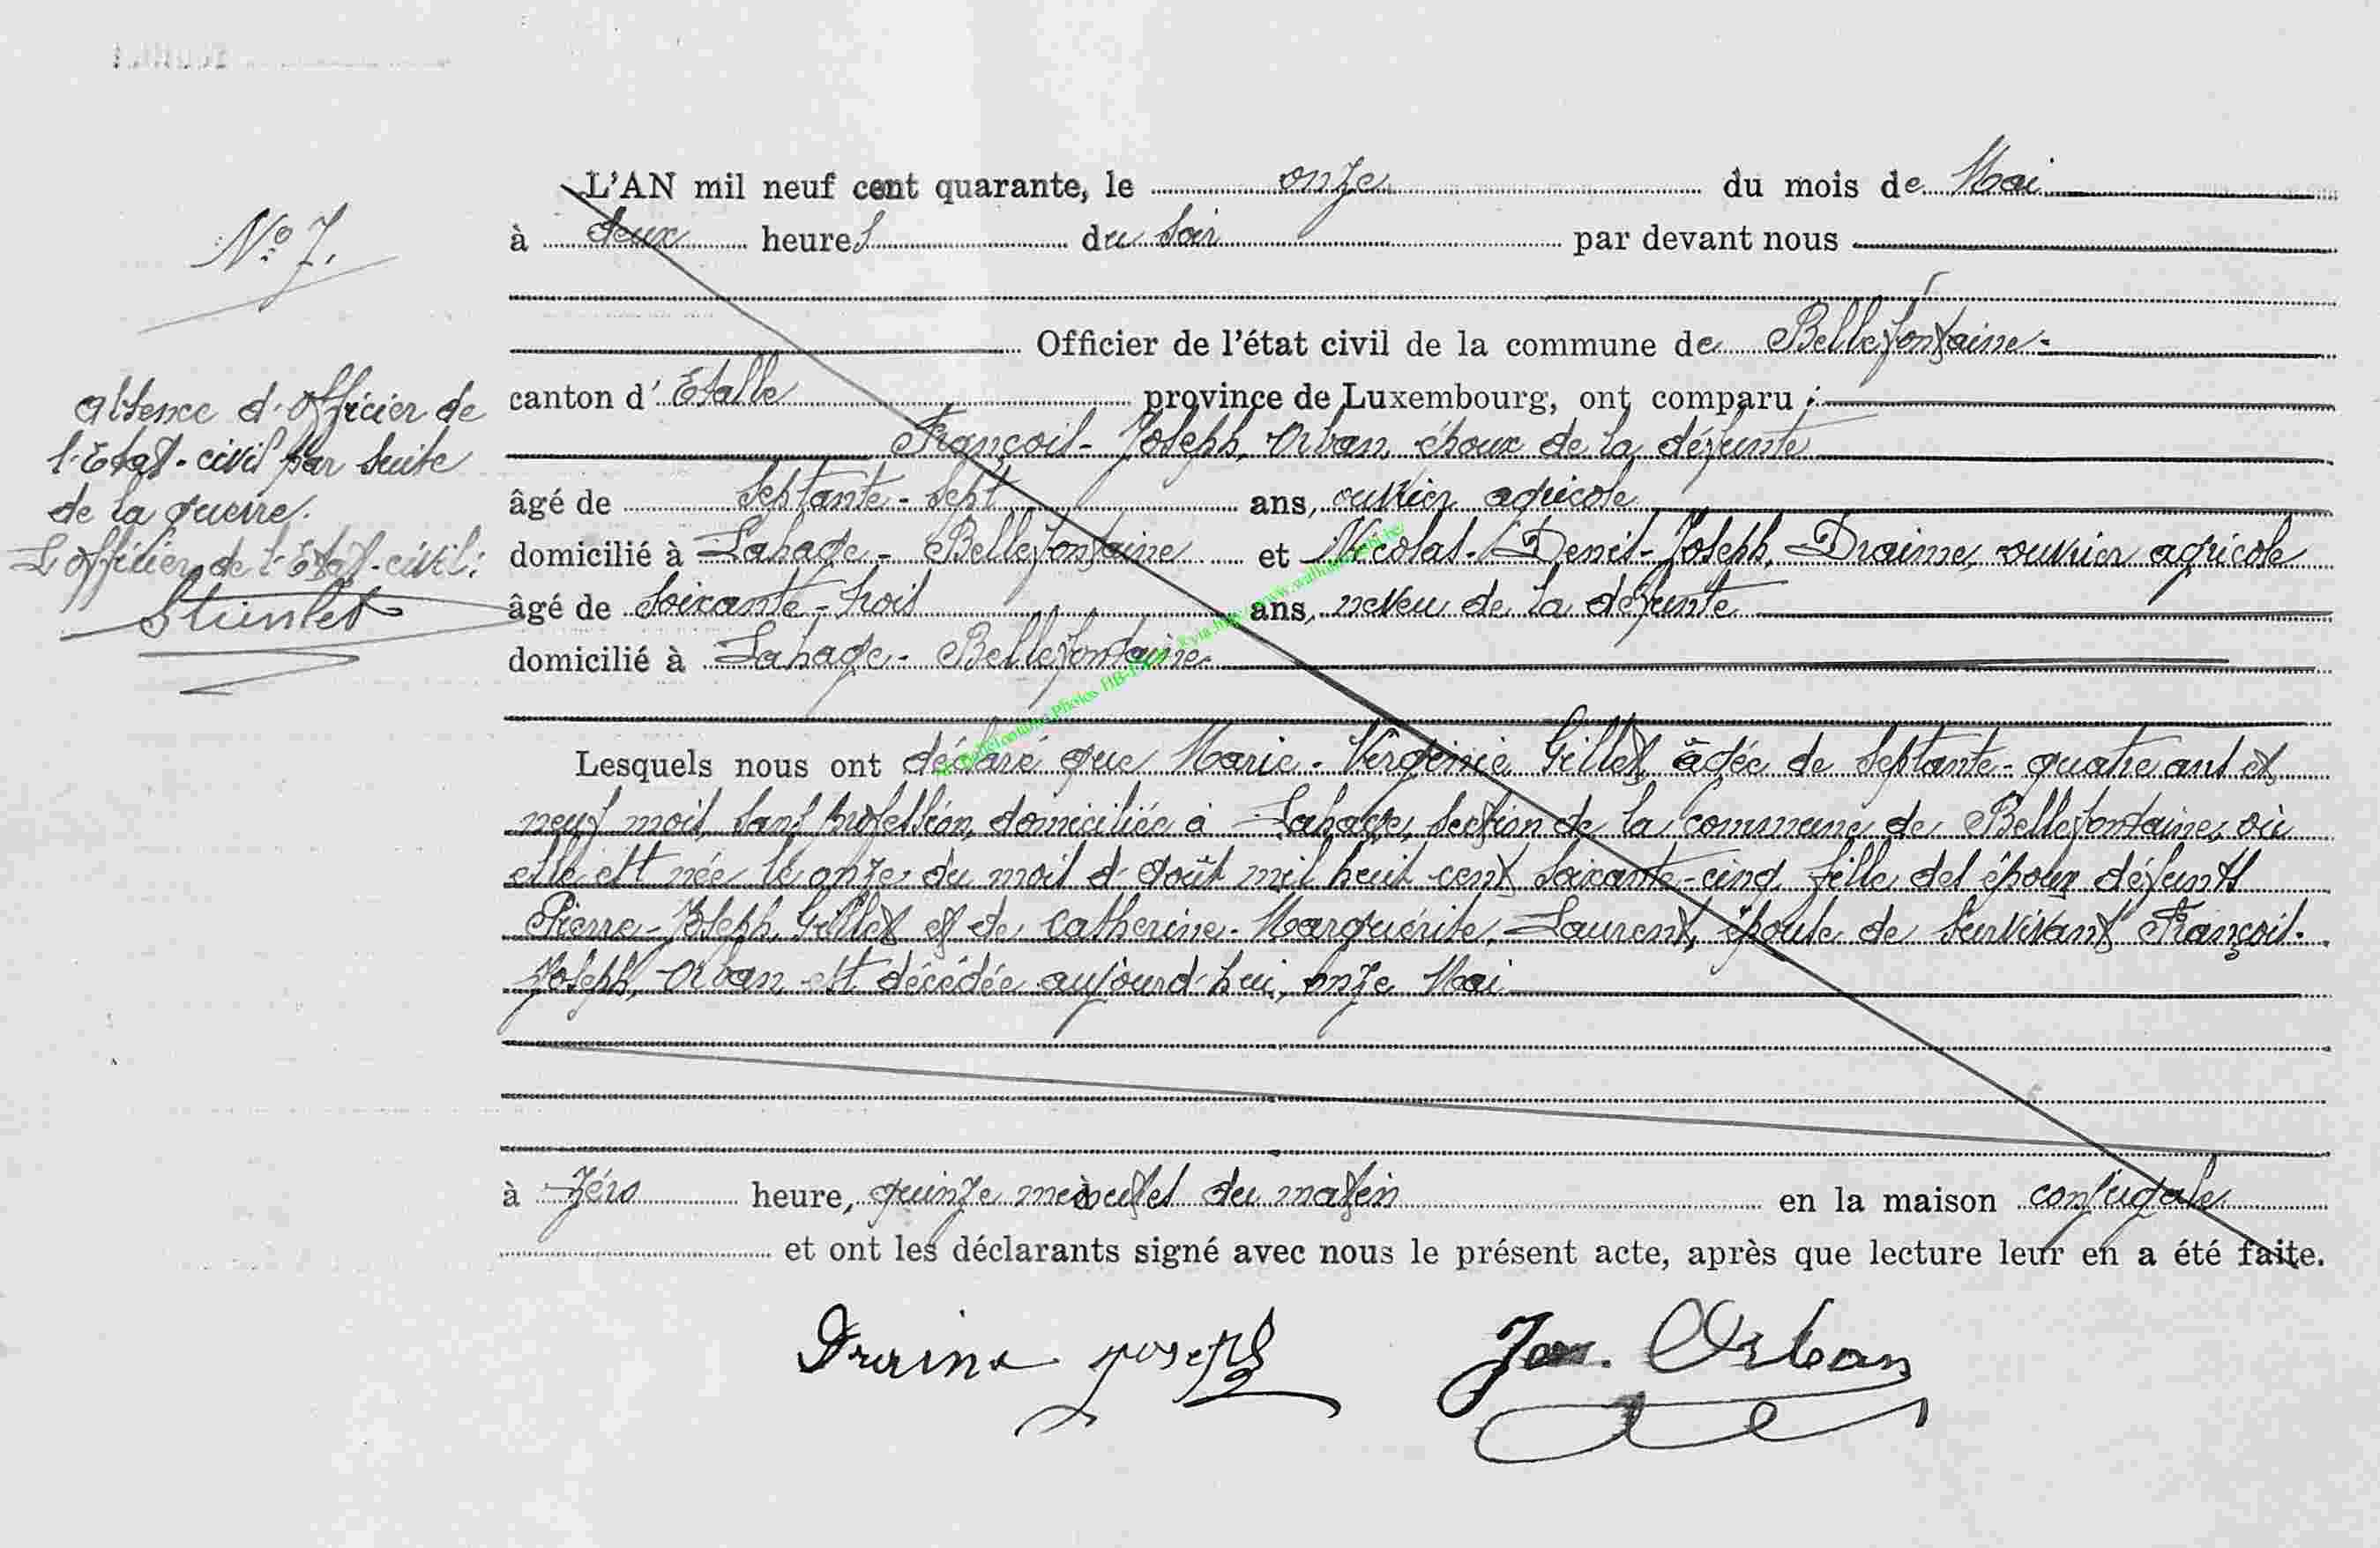 L'AN mil neuf cent quarante, le onze du mois de Mai
N° 7.
à deux heures du soir par devant nous
Officier de l'état civil de la commune de Bellefontaine
absence d'officier de
l'Etat-civil par suite
de la guerre.
L'officier de l'Etat-civil:
canton d'Etalle province de Luxembourg, ont comparu :
François-Joseph, Orban, époux de la défunte
âgé de septante-sept ans, ouvrier agricole
domicilié à Lahage-Bellefontaine et Nicolas-Denis-Joseph, Draime, ouvrier agricole
âgé de soixante-trois ans, neveu de la défunte
domicilié à Lahage-Bellefontaine
Lesquels nous ont déclaré que Marie-Virginie Gillet, âgée de septante-quatre ans et
neuf mois, sans profession, domiciliée à Lahage, section de la commune de Bellefontaine, où
elle est née le onze du mois d'août mil huit cent soixante-cinq, fille des époux défunts
Pierre-Joseph, Gillet et de Catherine-Marguérite, Laurent, épouse de survivant François-
Joseph, Orban est décédée aujourd'hui, onze Mai
à zéro heure, quinze minutes du matin en la maison conjugale
et ont les déclarants signé avec nous le présent acte, après que lecture leur en a été faite.
Draime Joseph Jos. Orban